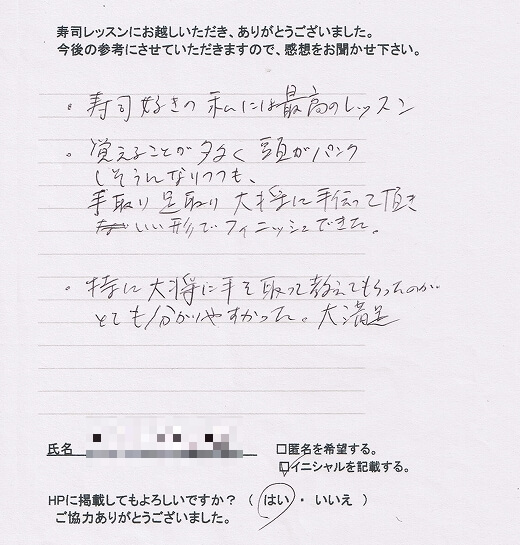 寿司レッスンにお越しいただき、ありがとうございました。
今後の参考にさせていただきますので、感想をお聞かせ下さい。
・寿司好きの私には最高のレッスン
・覚えることが多く頭がパンク
しそうになりつつも、
手取り足取り大将に手伝って頂き
いい形でフィニッシュできた。
・特に大将に手を取って教えてもらったのが
とても分かりやすかった。大満足
氏名
□匿名を希望する。
☑イニシャルを記載する。
HPに掲載してもよろしいですか？（ はい ・ いいえ ）
ご協力ありがとうございました。